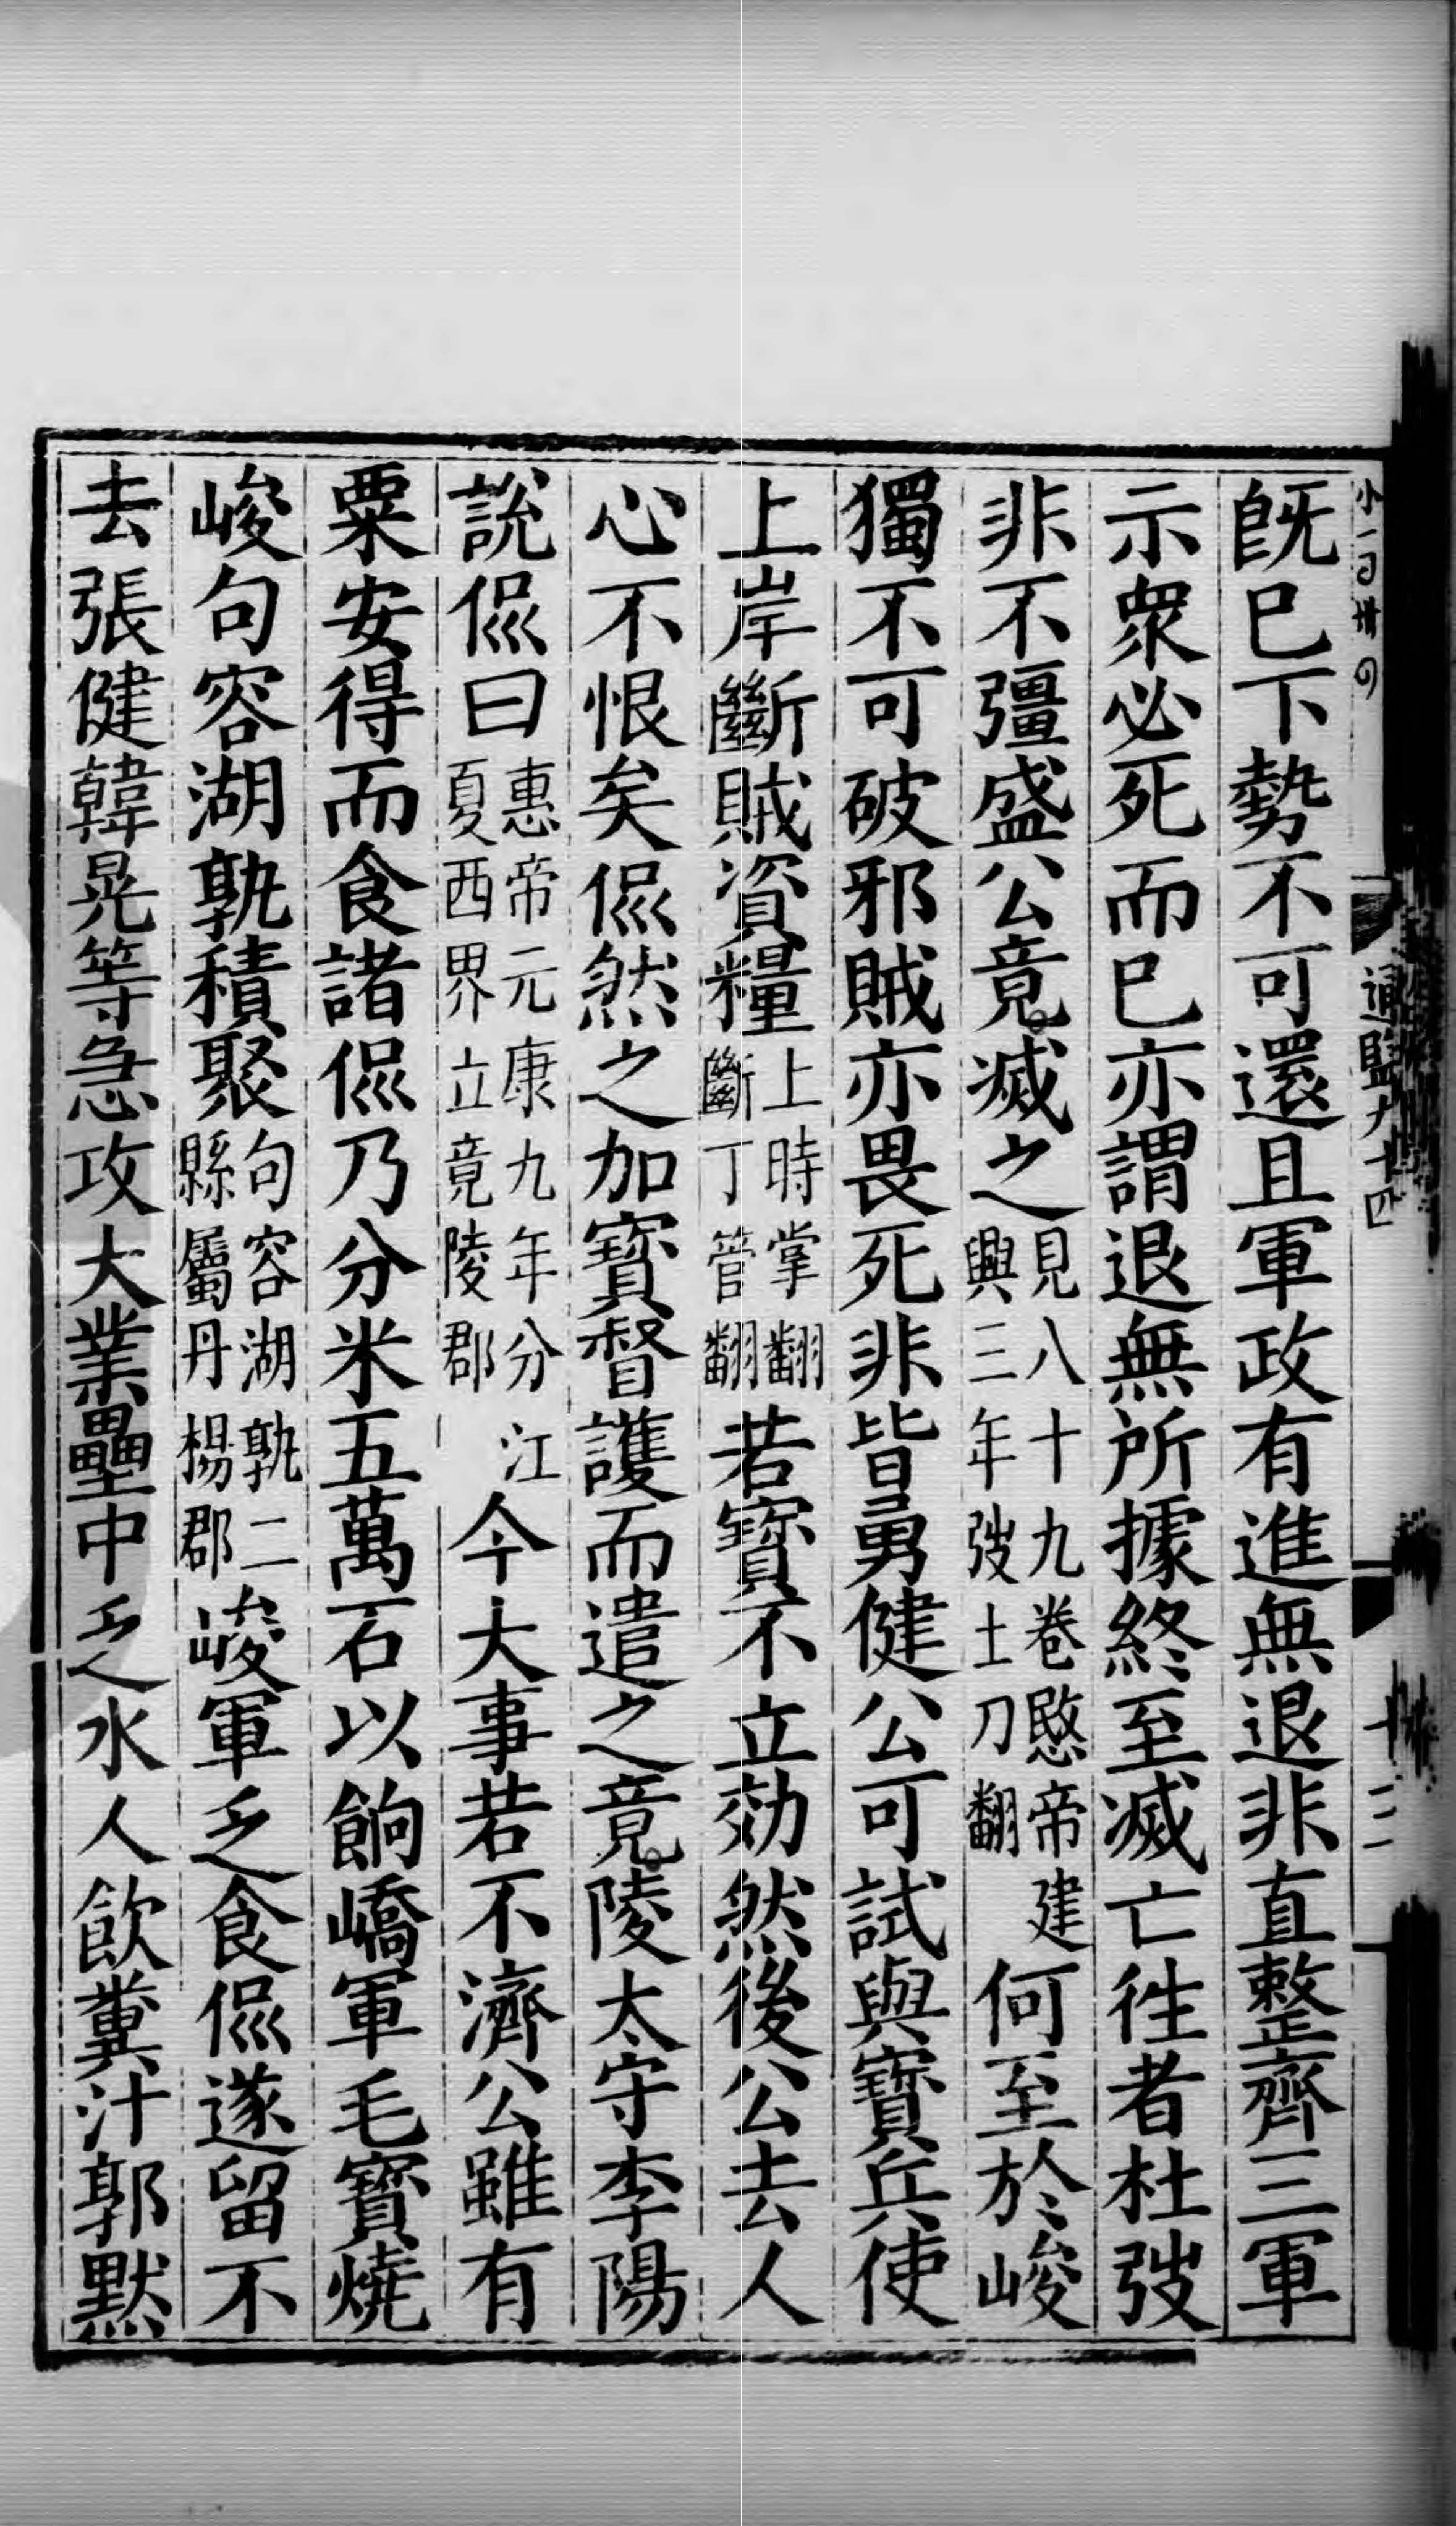 旣巳下勢不可還且軍政有進無退非直整齊三軍
示衆必死而巳亦謂退無所據終至滅亡徃者杜弢
非不彊盛公竟滅之見八十九卷愍帝建興三年弢土刀翻何至於峻
獨不可破邪賊亦畏死非皆勇健公可試與寶兵使
上岸斷賊資糧上時掌翻斷丁管翻若寶不立効然後公去人
心不恨矣侃然之加寶督護而遣之竟陵太守李陽
說侃曰惠帝元康九年分江夏西界立竟陵郡今大事若不濟公雖有
粟安得而食諸侃乃分米五萬石以餉嶠軍毛寶燒
峻句容湖孰積聚句容湖孰二縣屬丹楊郡峻軍乏食侃遂留不
去張健韓晃等急攻大業壘中乏水人飲糞汁郭默
通監九十四